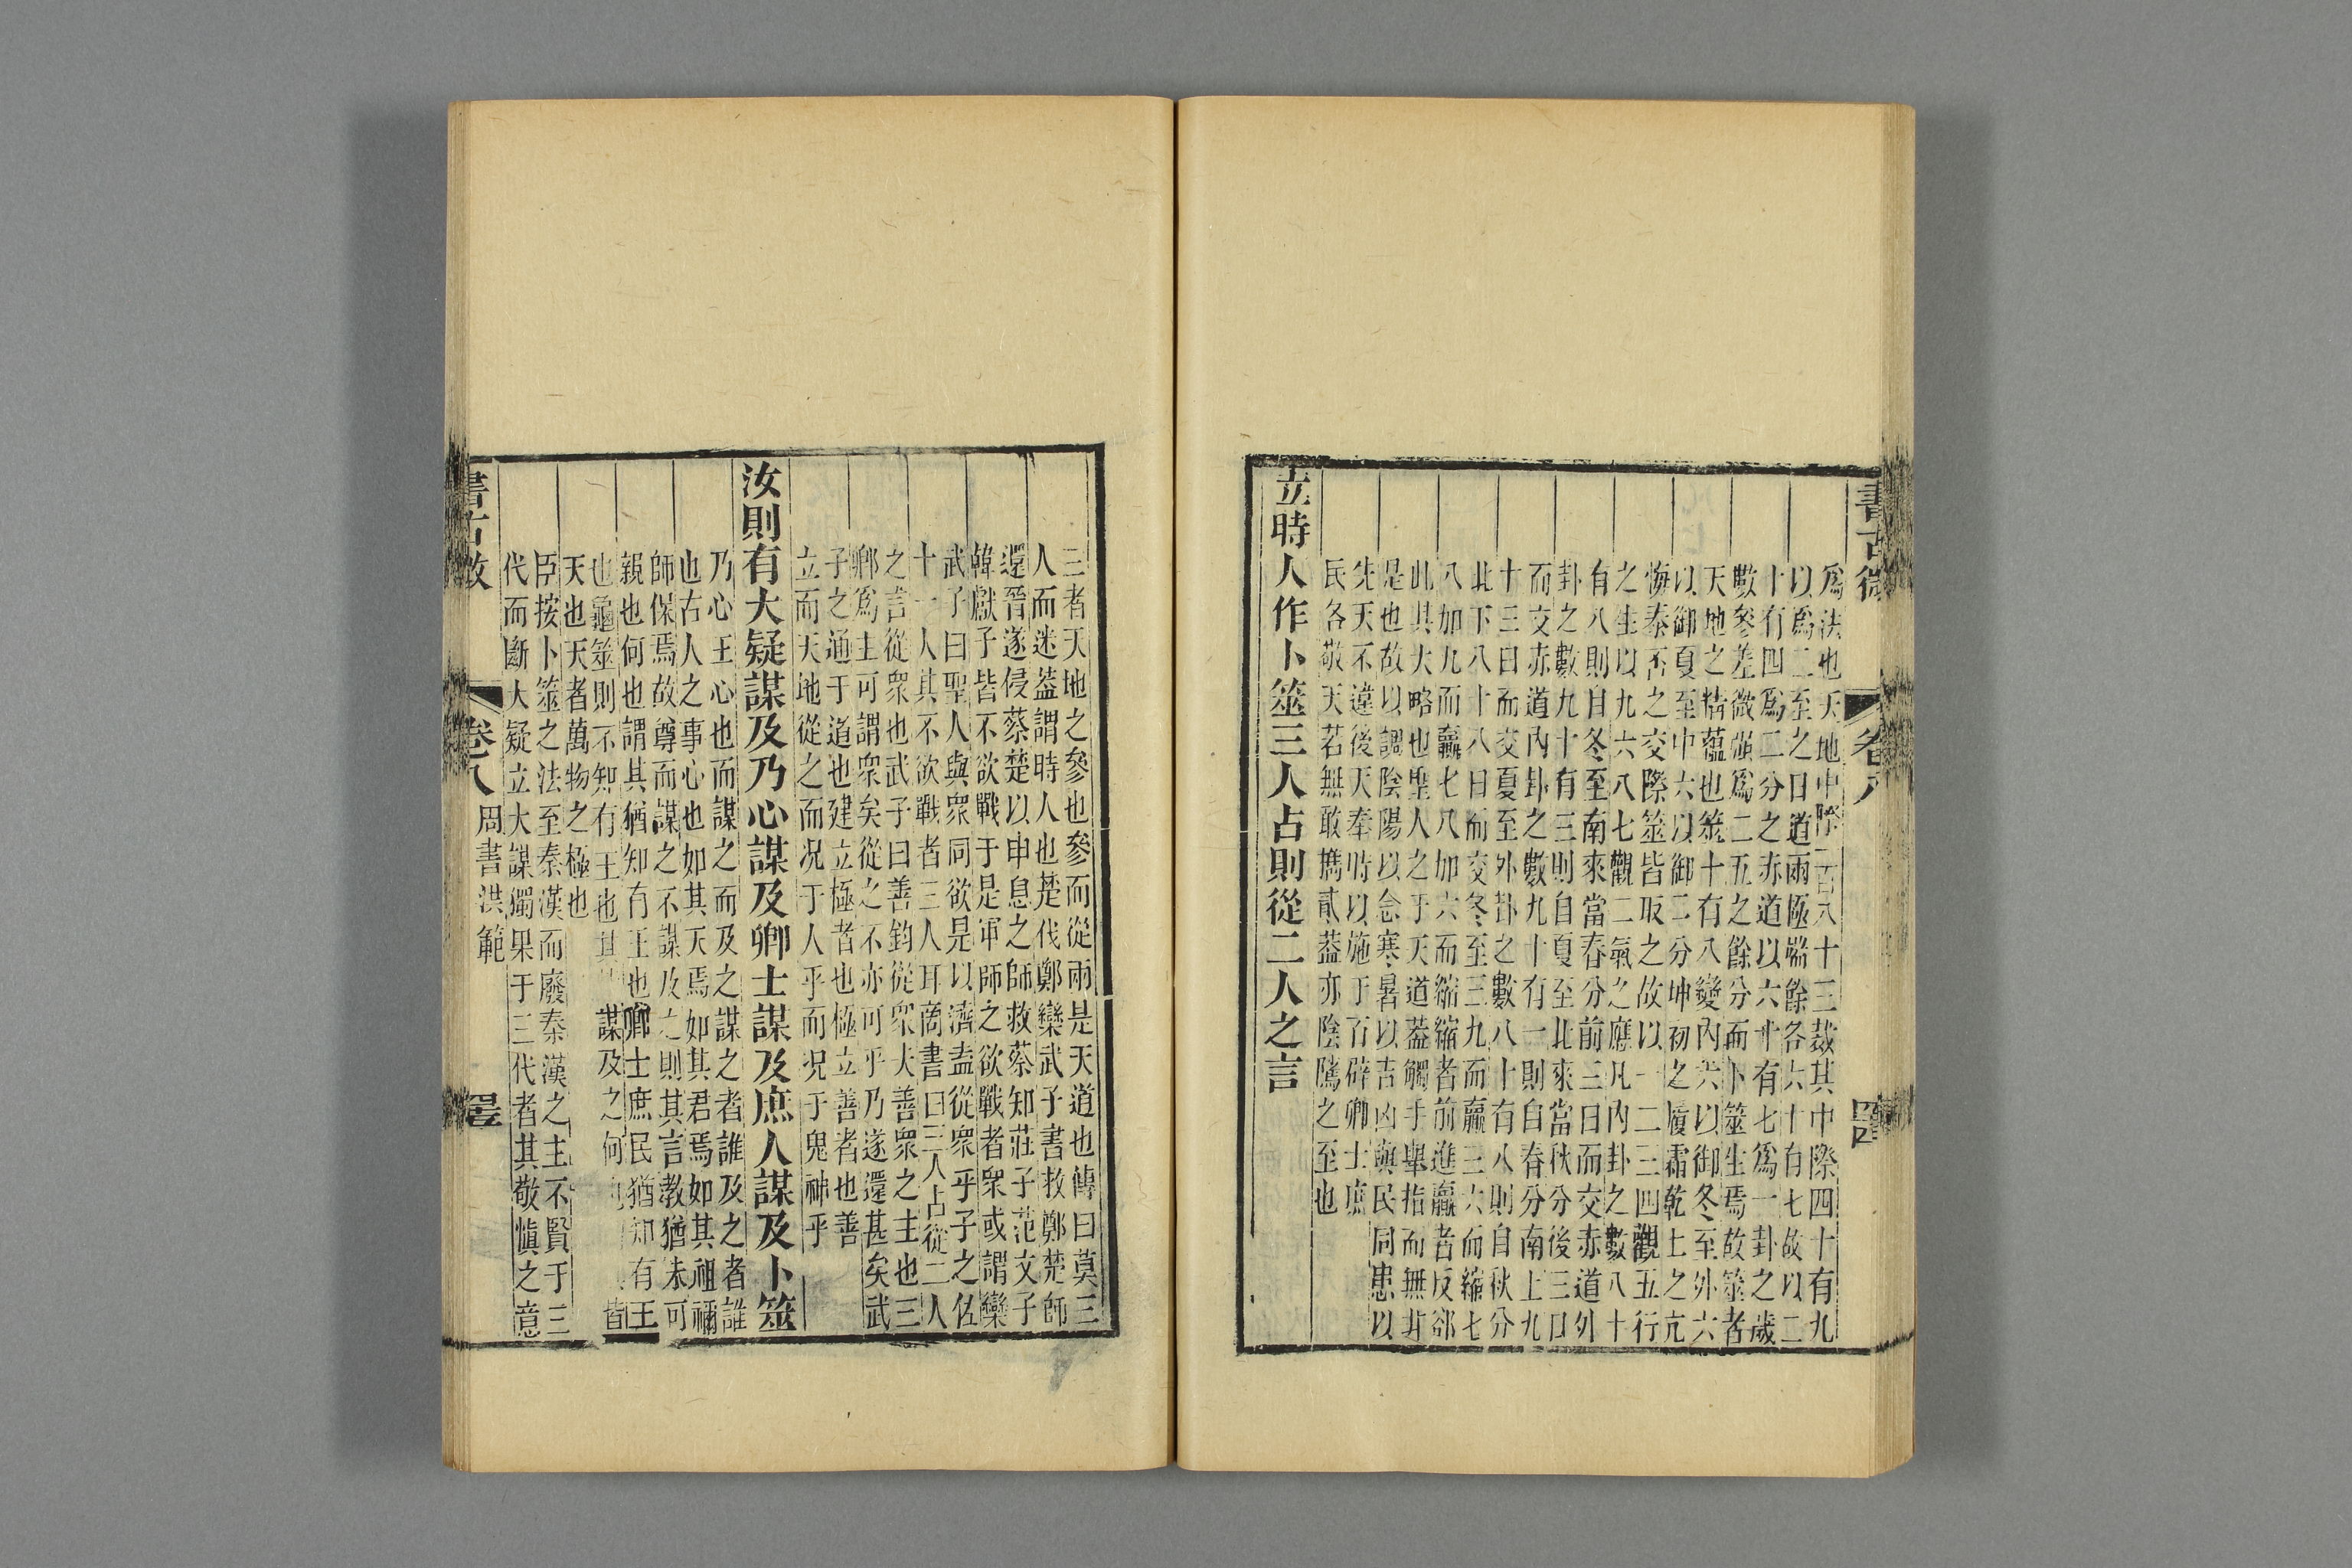 書古微　卷八　四四
爲法也天地中際二百八十三裁其中際四十有九
以爲二至之日道兩極端餘各六十有七故以二
十有四爲二分之赤道以六十有七爲一卦之歲
數參差微强爲二五之餘分而卜筮生焉故筮者
天地之精蘊也筮十有八變內六以御冬至外六
以御夏至中六以御二分坤初之履霜乾上之亢
悔泰否之交際筮皆取之故以一二三四觀五行
之生以九六八七觀二氣之應凡內卦之數八十
有八則日冬至南來當春分前三日而交赤道外
卦之數九十有三則自夏至北來當秋分後三日
而交赤道內卦之數九十有一則自春分南上九
十三日而交夏至外卦之數八十有八則自秋分
北下八十八日而交冬至三九而贏三六而縮七
八加九而贏七八加六而縮縮者前進贏者反郤
此其大略也聖人之于天道蓋觸手舉指而無非
是也故以調陰陽以念寒暑以吉凶與民同患以
先天不違後天奉時以施于百辟卿士庶
民各敬天若無敢攜貳蓋亦陰騭之至也
立時人作卜筮三人占則從二人之言
三者天地之參也參而從兩是天道也傳曰莫三
人而迷蓋謂時人也楚伐鄭欒武子書救鄭楚師
還晉遂侵蔡楚以申息之師救蔡知莊子范文子
韓獻子皆不欲戰于是軍師之欲戰者衆或謂欒
武子曰聖人與衆同欲是以濟盍從衆乎子之佐
十一人其不欲戰者三人耳商書曰三人占從二人
之言從衆也武子曰善鈞從衆夫善衆之主也三
卿爲主可謂衆矣從之不亦可乎乃遂還甚矣武
子之通于道也建立極者也極立善者也善
立而天地從之而况于人乎而况于鬼神乎
汝則有大疑謀及乃心謀及卿士謀及庶人謀及卜筮
乃心王心也而謀之而及之謀之者誰及之者誰
也古人之事心也如其天焉如其君焉如其祖禰
師保焉故尊而謀之不謀及之則其言教猶未可
親也何也謂其猶知有王也卿士庶民猶知有王
也龜筮則不知有王也其謀及之何皆
天也天者萬物之極也
臣按卜筮之法至秦漢而廢秦漢之主不賢于三
代而斷大疑立大謀獨果于三代者其敬愼之意
書古微　卷八　周書洪範　四五